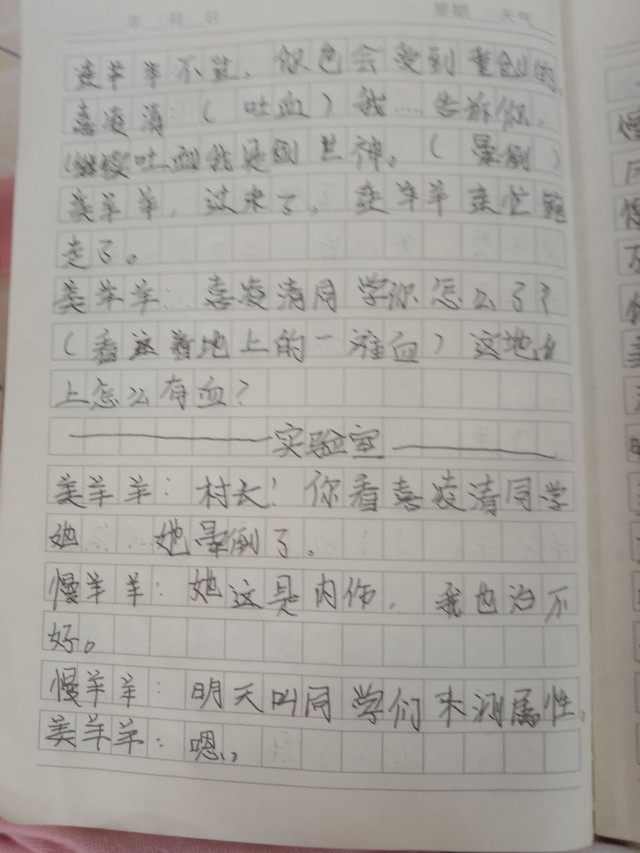 年 月 日 星期 天气
羊羊不过，你也会受到重创的
喜凌清：（吐血）我……告诉你，
（继续吐血）我是创世神。（晕倒）
美羊羊，过来了，羊羊连忙跑
走了。
美羊羊：喜凌清同学你怎么了？
（看这着地上的一滩血）这地
上怎么有血？
实验室
美羊羊：村长！你看喜凌清同学
她……她晕倒了。
慢羊羊：她这是内伤，我也治不
好。
慢羊羊：明天叫同学们来测属性，
美羊羊：嗯，